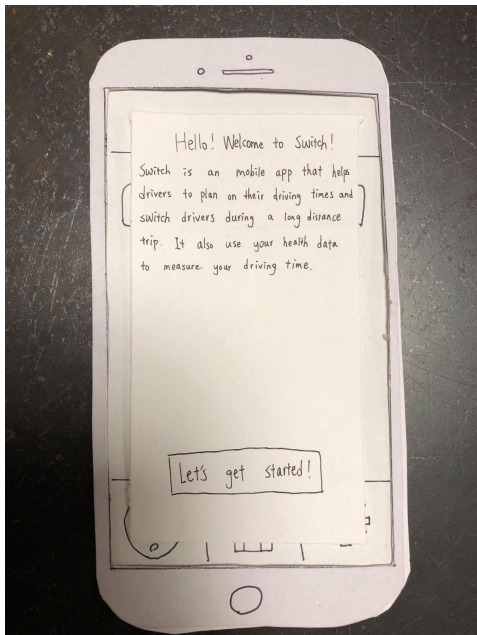 Hello! Welcome to Switch!
Switch is an mobile app that helps
drivers to plan on their driving times and
switch drivers during a long distance
trip. It also use your health data
to measure your driving time.
Let's get started!